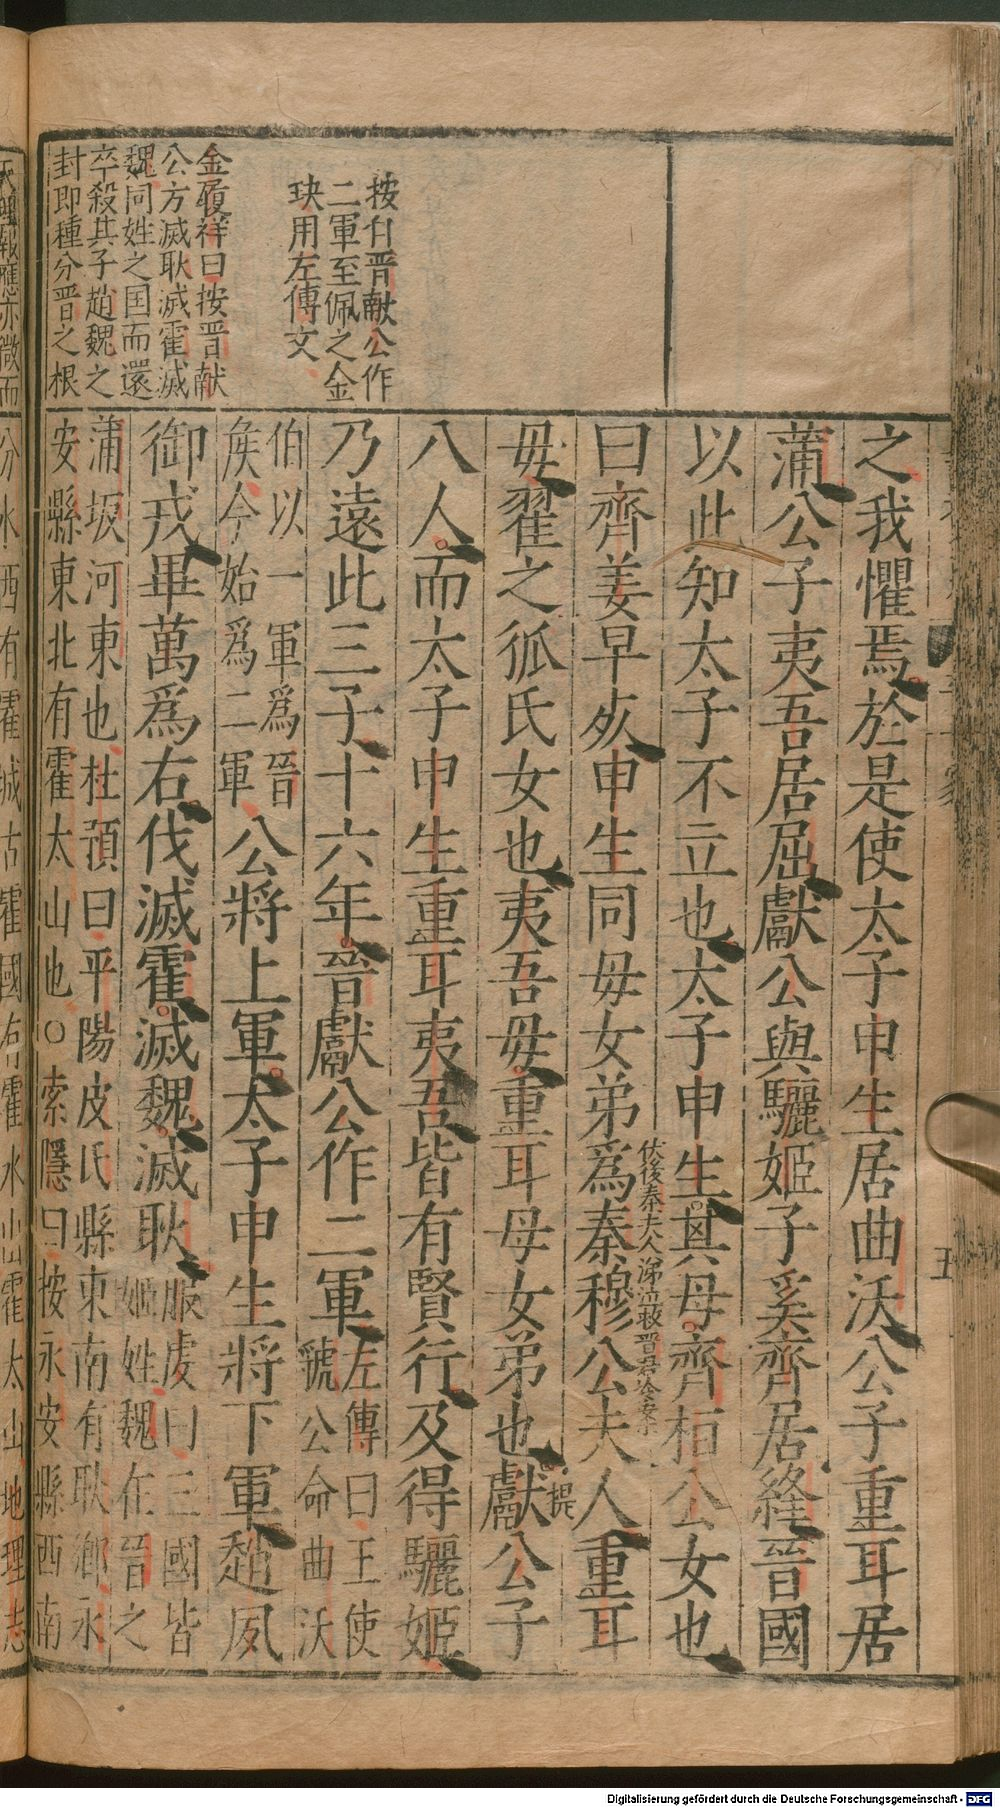 按自晋献公作
二軍至佩之金
玦用左傳文
金履祥曰按晋献
公方滅耿滅霍滅
魏同姓之国而還
卒殺其子趙魏之
封即種分晋之根
之我懼焉於是使太子申生居曲沃公子重耳居
蒲公子夷吾居屈獻公與驪姬子奚齊居絳晉國
以此知太子不立也太子申生其母齊桓公女也
伏後秦夫人涕泣救晋君
曰齊姜早死申生同母女弟爲秦穆公夫人重耳
母翟之狐氏女也夷吾母重耳母女弟也獻公子
提
八人而太子申生重耳夷吾皆有賢行及得驪姬
乃遠此三子十六年晉獻公作二軍左傳曰王使
虢公命曲沃
伯以一軍爲晉
侯今始爲二軍公將上軍太子申生將下軍趙夙
御戎畢萬爲右伐滅霍滅魏滅耿服虔曰三國皆
姬姓魏在晉之
蒲坂河東也杜預曰平陽皮氏縣東南有耿鄉永
安縣東北有霍太山也○索隱曰按永安縣西南
汾水西有霍城古霍國有霍水出霍太山地理志
天理報應亦微而
五
Digitalisierung gefördert durch die Deutsche Forschungsgemeinschaft - DFG